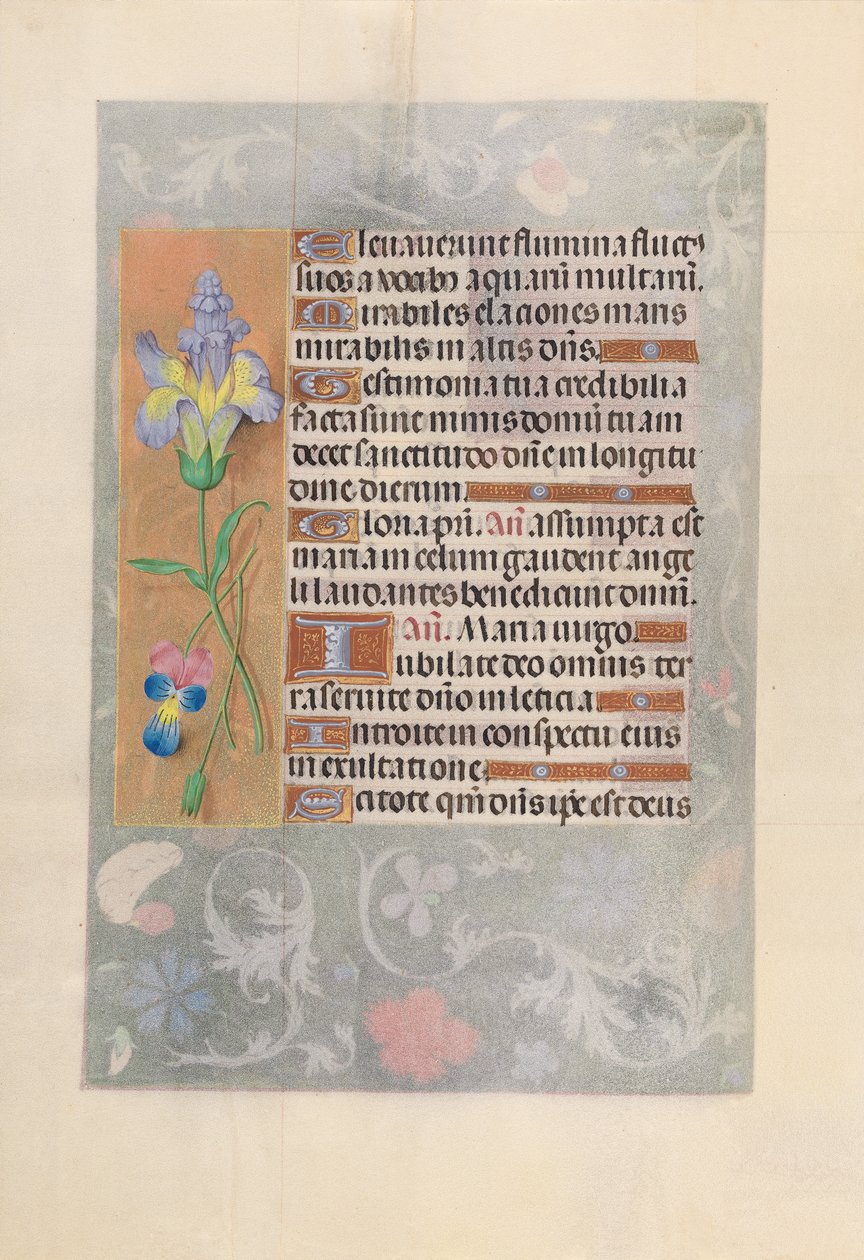 Eleuauerunt flumina fluct⁹
suos a vocib⁹ aquarū multarū.
Mirabiles elaciones maris
mirabilis in altis dn̄s.
Testimonia tua credibilia
facta sunt nimis domū tuam
decet sanctitudo dn̄e in longitu
dine dierum.
Gloria pr̄i. An̄. assumpta est
maria in celum gaudent ange
li laudantes benedicunt dn̄m̄.
An̄. Maria uirgo.
Iubilate deo omnis ter
ra seruite dn̄o in leticia.
Introite in conspectu eius
in exultatione.
Scitote qm̄ dn̄s ip̄e est deus